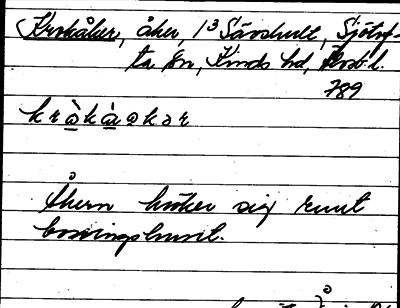 Krokåker, åker, 1³ Sävshult, Sjötof-
ta sn, Kinds hd, Älvsb. l.
789
k r ò k å̀ a k ə r
Åkern kröker sig runt
boningshuset.